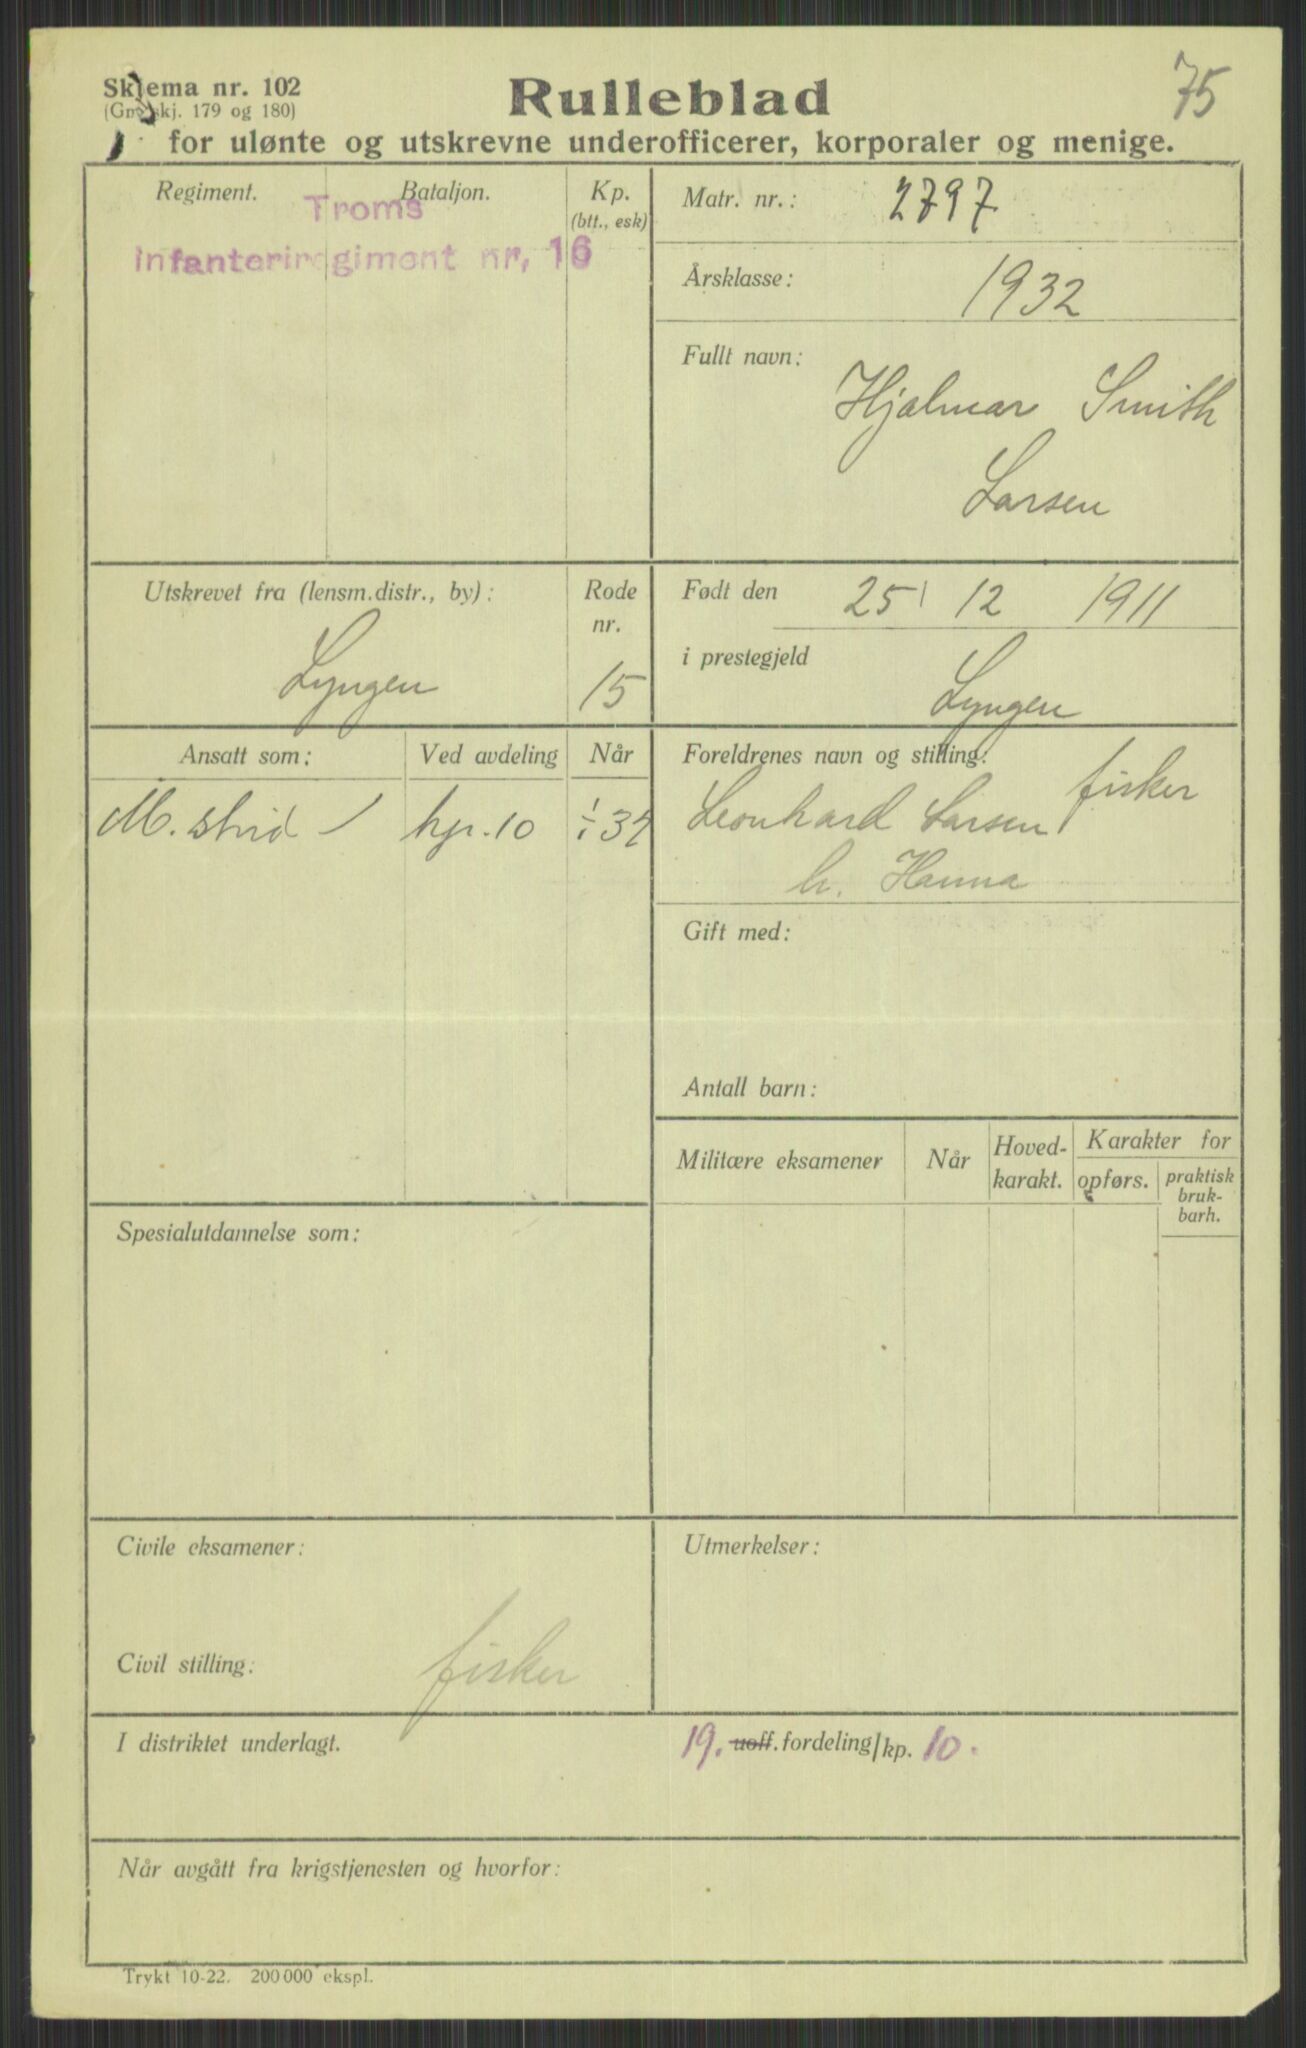 Skjema nr. 102
(Gml. skj. 179 og 180)
75
Rulleblad
for ulønte og utskrevne underofficerer, korporaler og menige.
Regiment.
Bataljon.
Kp.
(btt., esk)
Troms
infanteriregiment nr, 16
Matr. nr.: 2797
Årsklasse: 1932
Fullt navn:
Hjalmar Smith
Larsen
Utskrevet fra (lensm.distr., by):
Lyngen
Rode
nr.
15
Født den 25 12 1911
i prestegjeld
Lyngen
Ansatt som:
Ved avdeling
Når
M. strid
kp. 10
1/1 32
Foreldrenes navn og stilling:
fisker
Leonhard Larsen
h. Hanna
Gift med:
Antall barn:
Militære eksamener
Når
Hoved-
karakt.
Karakter for
opførs.
praktisk
bruk-
barh.
Spesialutdannelse som:
Civile eksamener:
Civil stilling: fisker
Utmerkelser:
I distriktet underlagt.
19. uoff. fordeling/kp. 10.
Når avgått fra krigstjenesten og hvorfor:
Trykt 10-22. 200 000 ekspl.